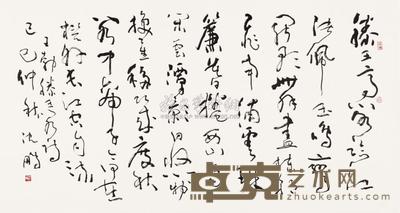 滕王高阁临江
渚佩玉鸣鸾
罢歌舞画栋朝
飞南浦云珠
簾暮捲西山雨
闲云潭影日悠悠物
换星移几度秋
阁中帝子今何在
槛外长江空自流
王勃滕王阁诗
己巳仲秋 沈鹏
艺术网